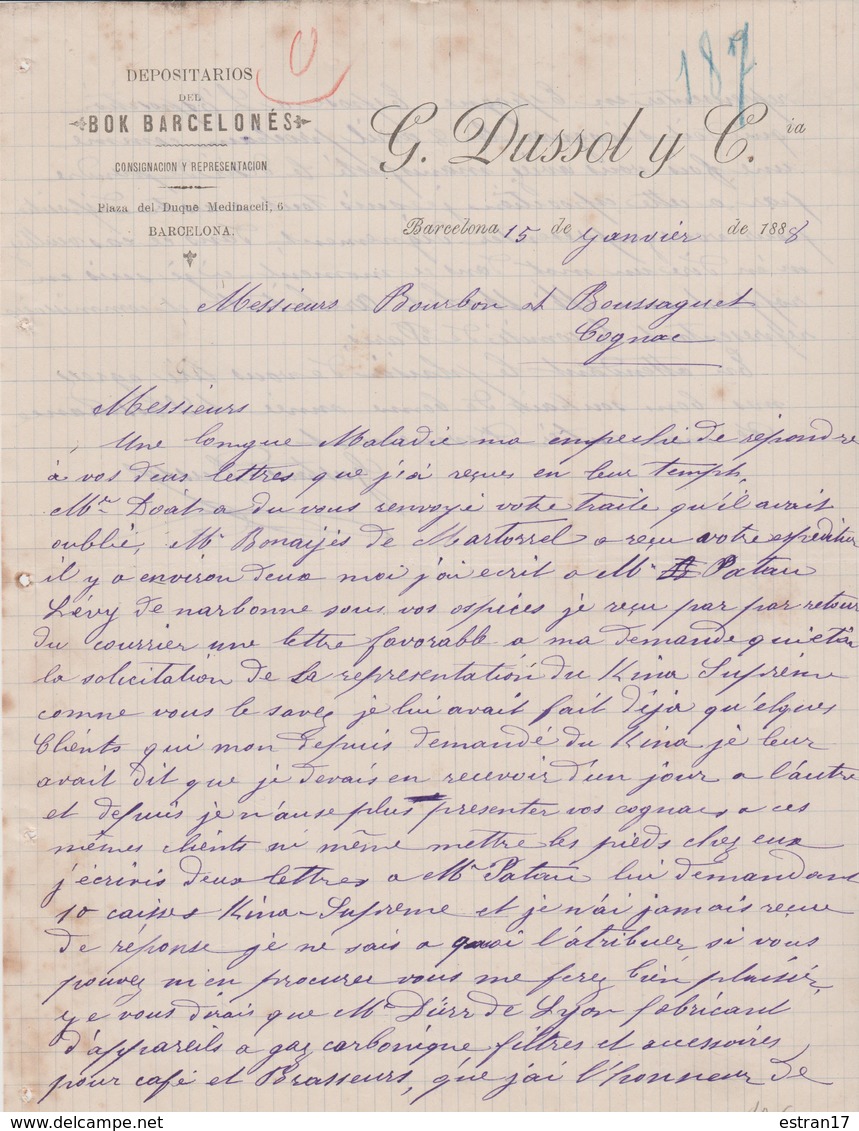 187
DEPOSITARIOS
DEL
BOK BARCELONÉS
CONSIGNACION Y REPRESENTACION
Plaza del Duque Medinaceli, 6
BARCELONA.
G. Dussol y C.ia
Barcelona 15 de Janvier de 1888
Messieurs Bourbon et Boussaguet
Cognac
Messieurs
Une longue Maladie ma empeché de répondre
à vos deus lettres que j'ai reçues en leur temph,
Mr Doat a du vous renvoyé votre traite qu'il avait
oublié, Mr Bonaijés de Martorrel a reçu votre expedition
il y a environ deux moi j'ai ecrit a Mr Patau
Lévy de narbonne sous vos ospices je reçu par par retour
du courrier une lettre favorable a ma demande qui etai
la solicitation de la representation du Kina Suprème
comne vous le savez je lui avait fait déja qu'elques
Clients qui mon depuis demandé du Kina je leur
avait dit que je devais en recevoir d'un jour a l'autre
et depuis je n'ause plus presenter vos cognacs a ces
mêmes clients ni même mettre les pieds chez eux
j'écrivis deux lettres a Mr Patau lui demandant
10 caisses Kina-Suprème et je n'ai jamais reçue
de réponse je ne sais a quoi l'atribuer si vous
pouvez m'en procurer vous me ferez bien plaisir,
ye vous dirais que Mr Dürr de Lyon fabricant
d'appareils a gaz carbonique filtres et accessoires
pour café et Brasseurs, que j'ai l'honneur de
estran17